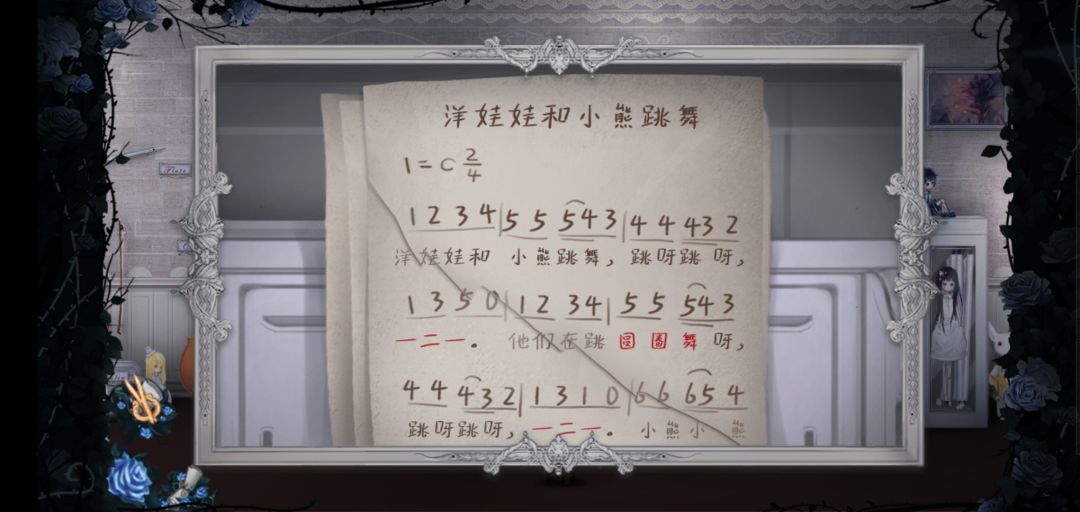 洋娃娃和小熊跳舞
1=C 2/4
1 2 3 4|5 5 5 4 3|4 4 4 3 2
洋娃娃和 小熊跳舞，跳呀跳呀，
1 3 5 0|1 2 3 4|5 5 5 4 3
一二一。他们在跳圆圈舞呀，
4 4 4 3 2|1 3 1 0|6 6 6 5 4
跳呀跳呀，一二一。小熊小熊